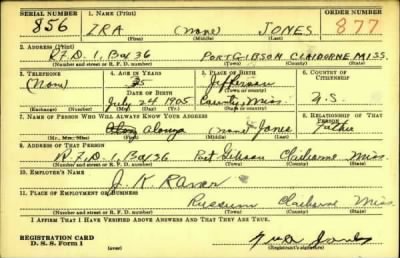 SERIAL NUMBER 1. NAME (Print) ORDER NUMBER
856 IRA (None) JONES 877
(First) (Middle) (Last)
2. ADDRESS (Print)
R.F.D. 1, Box 36 PORT GIBSON CLAIBORNE MISS.
(Number and street or R. F. D. number) (Town) (County) (State)
3. TELEPHONE 4. AGE IN YEARS 5. PLACE OF BIRTH 6. COUNTRY OF CITIZENSHIP
(None) 35 Jefferson
DATE OF BIRTH (Town or county)
July 24 1905 County, Miss. U.S.
(Exchange) (Number) (Mo.) (Day) (Yr.) (State or country)
7. NAME OF PERSON WHO WILL ALWAYS KNOW YOUR ADDRESS 8. RELATIONSHIP OF THAT PERSON
Alonza (None) Jones Father
(Mr., Mrs., Miss) (First) (Middle) (Last)
9. ADDRESS OF THAT PERSON
R.F.D. 1, Box 36 Port Gibson Claiborne Miss.
(Number and street or R. F. D. number) (Town) (County) (State)
10. EMPLOYER'S NAME
J. K.
11. PLACE OF EMPLOYMENT OR BUSINESS
Russum Claiborne Miss.
(Number and street or R. F. D. number) (Town) (County) (State)
I AFFIRM THAT I HAVE VERIFIED ABOVE ANSWERS AND THAT THEY ARE TRUE.
REGISTRATION CARD
D. S. S. Form 1 (over) Jones
(Registrant's signature)